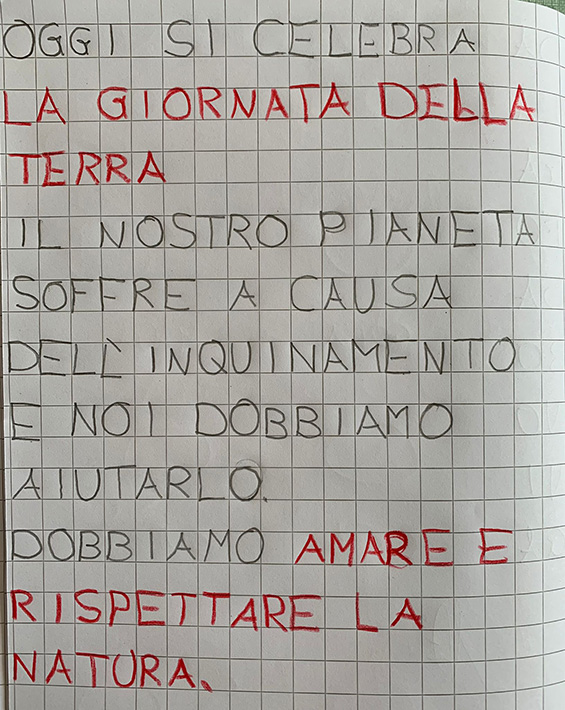 OGGI SI CELEBRA
LA GIORNATA DELLA
TERRA
IL NOSTRO PIANETA
SOFFRE A CAUSA
DELL'INQUINAMENTO
E NOI DOBBIAMO
AIUTARLO.
DOBBIAMO AMARE E
RISPETTARE LA
NATURA.